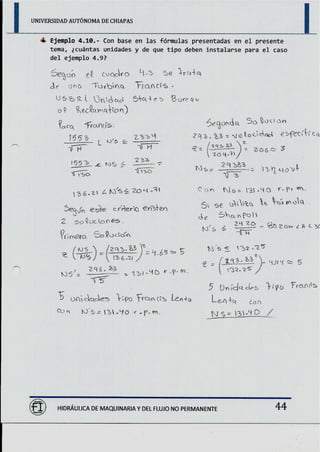 UNIVERSIDAD AUTÓNOMA DE CHIAPAS
Ejemplo 4.10.- Con base en las fórmulas presentadas en el presente
tema, ¿cuántas unidades y de que tipo deben instalarse para el caso
del ejemplo 4.9?
Según el cuadro 4-3 se trata
de una Turbina Francis.
USBR ( Unidad States Bureau
of Reclamation)
Para Francis:
1553 / √H ≤ N's ≤ 2334 / √H
1553 / √130 ≤ N's ≤ 233 / √130
136.21 ≤ N's ≤ 204.71
Según este criterio existen
2 soluciones.
Primera Solución
Z (NS / N's) = (293.83 / 136.21)² = 4.65 ≈ 5
NS' = 293.83 / √5 = 131.40 r.p.m.
5 unidades tipo Francis Lenta
con N's = 131.40 r.p.m.
Segunda Solución
293.83 = velocidad específica
Z = (293.83 / 204.71)² = 2.06 ≈ 3
con NS = 131.40 r.p.m.
Si se utiliza la fórmula
de Shanpoll
N's ≤ 132.25
5 Unidades tipo Francis
Lenta con
NS = 131.40
HIDRÁULICA DE MAQUINARIA Y DEL FLUJO NO PERMANENTE
44